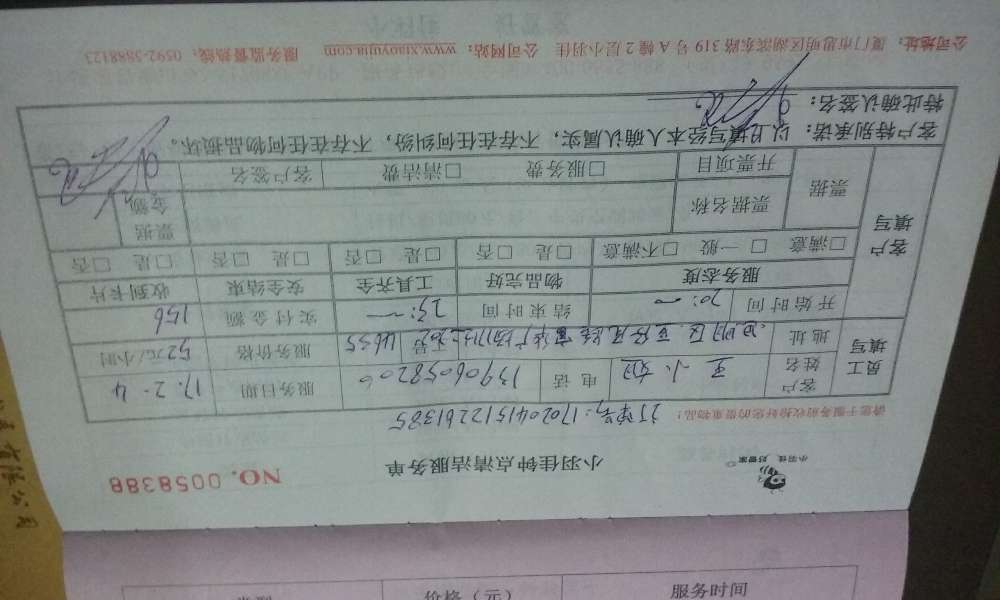 小羽佳·好管家
小羽佳钟点清洁服务单
NO. 0058388
请您于服务前收捡好您的贵重物品！
订单号：1702041512261385
员工填写
客户姓名
王小姐
电话
13906058206
服务日期
17.2.4
地址
思明区
工号
4635
服务价格
52元/小时
开始时间
20:—
结束时间
23:—
实付金额
156
客户填写
服务态度
物品完好
工具齐全
安全结束
收到卡片
□满意 □一般 □不满意
□是 □否
□是 □否
□是 □否
□是 □否
票据
票据名称
票据金额
开票项目
□服务费 □清洁费
客户签名
客户特别承诺：以上填写经本人确认属实，不存在任何纠纷，不存在任何物品损坏。
特此确认签名：
公司地址：厦门市思明区湖滨东路 319 号 A 幢 2 层小羽佳 公司网站：www.xiaoyujia.com 服务监督热线：0592-5888123
价格（元）
服务时间